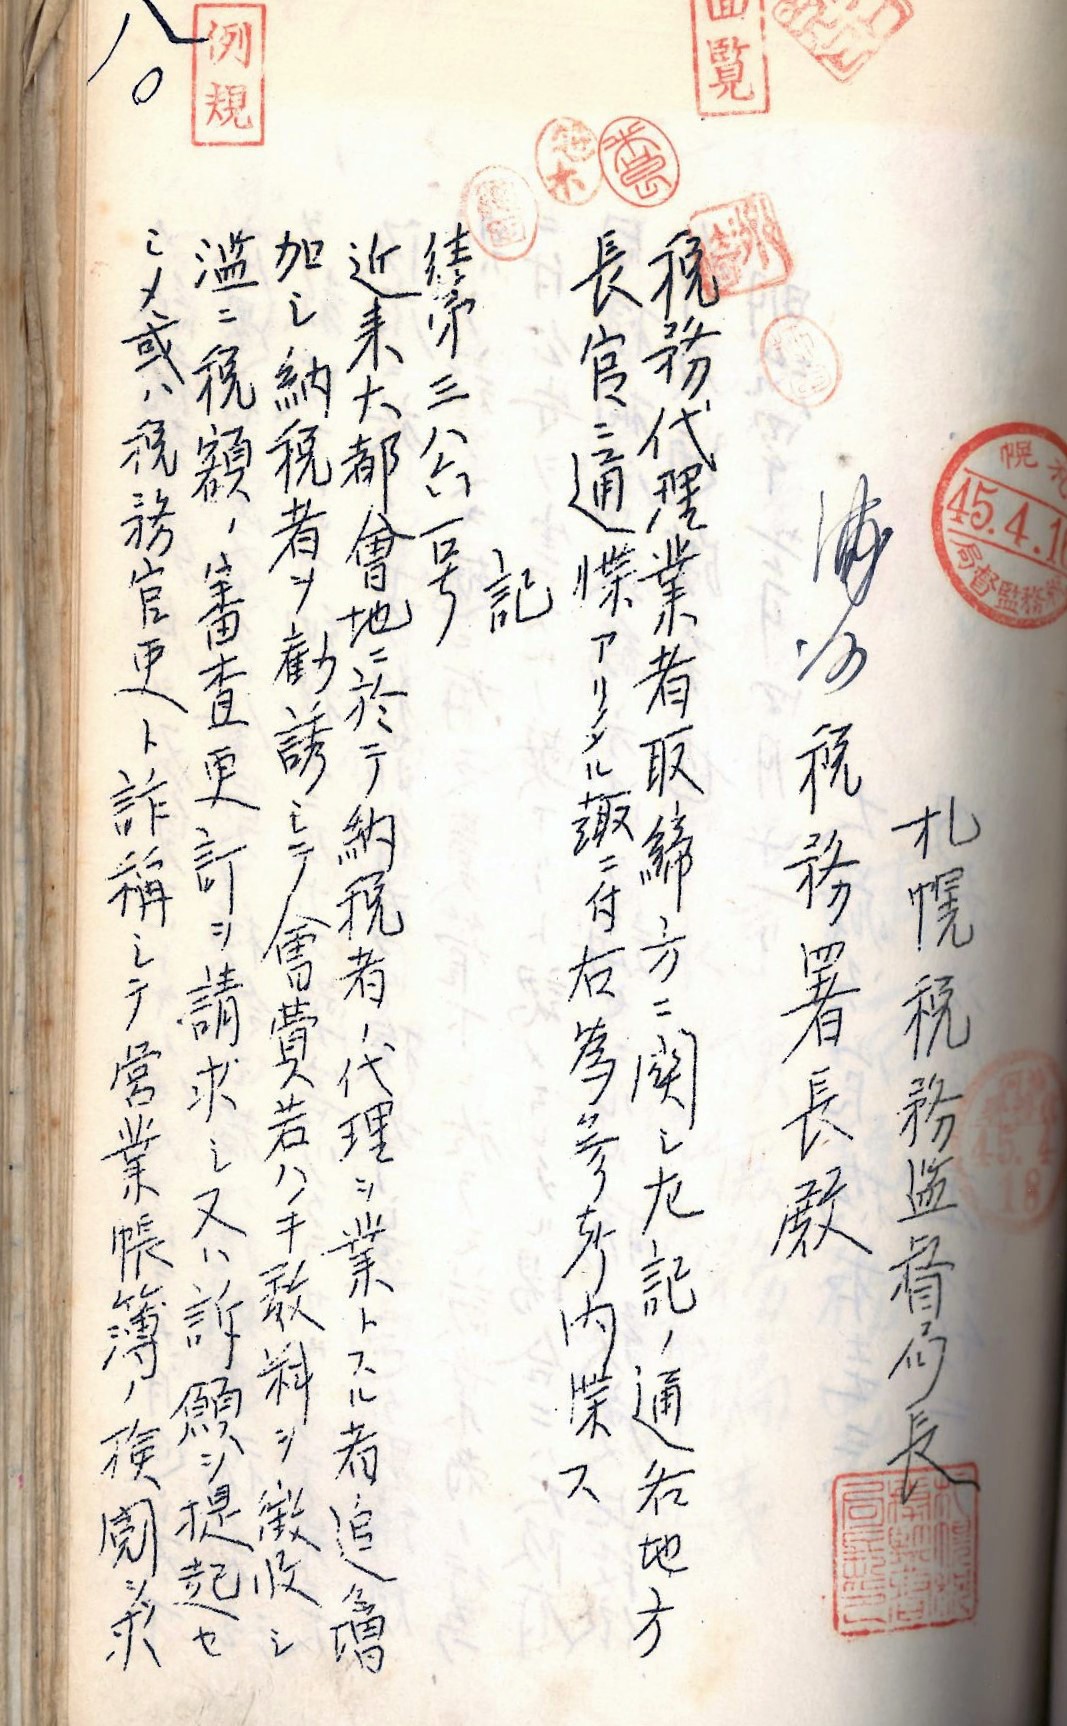 回覧
例規
八〇
札幌 45.4.1 局督監務税
45.4 18
札幌税務監督局長
税務署長殿
税務代理業者取締方ニ関シ左記ノ通各地方
長官ニ通牒アリタル趣ニ付右為参考内牒ス
記
往第三八六一号
近来大都會地ニ於テ納税者ノ代理ヲ業トスル者追増
加シ納税者ヲ勧誘シテ會費若ハ手数料ヲ徴収シ
濫ニ税額ノ審査更訂ヲ請求シ又ハ訴願ヲ提起セ
シメ或ハ税務官吏ト詐稱シテ営業帳簿ノ検閲ヲ求